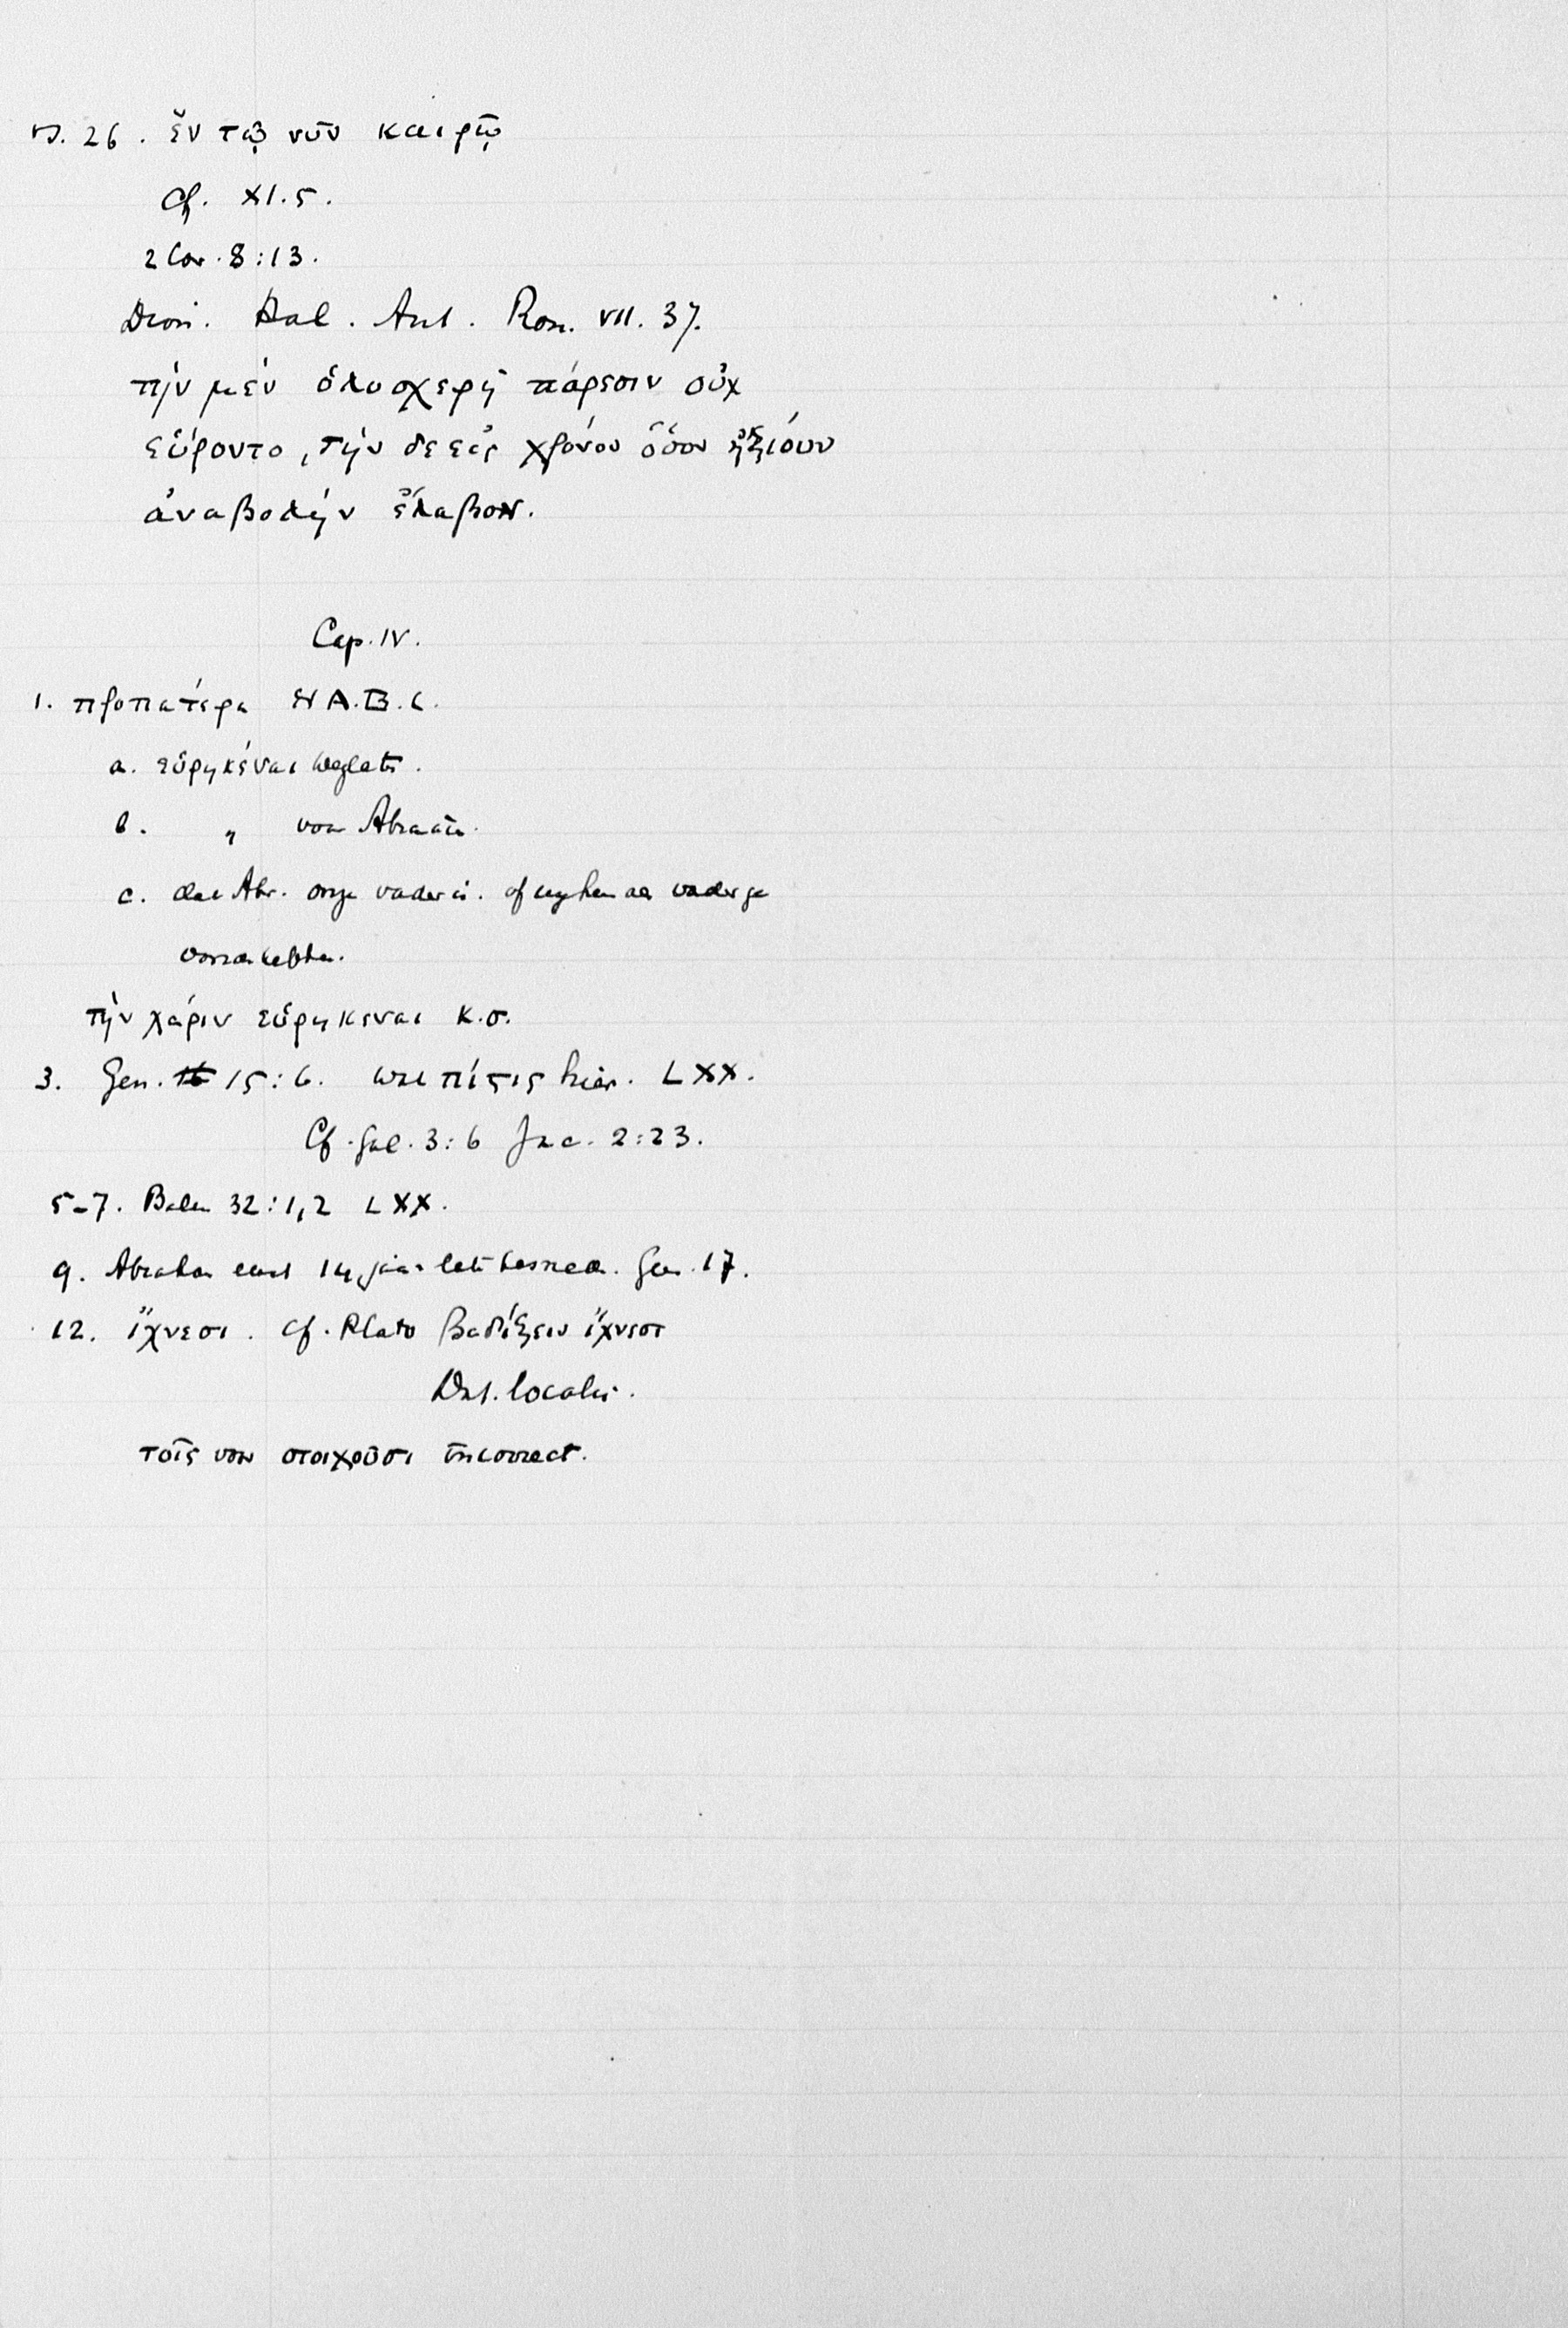 v. 26. ἐν τῷ νῦν καιρῷ
Cf. XI.5.
2 Cor. 8:13.
Dion. Hal. Ant. Rom. VII. 37.
τὴν μὲν ὁλοσχερῆ πάρεσιν οὐχ
εὕροντο, τὴν δε εἰς χρόνον ὅσον ἠξίουν
ἀναβολὴν ἔλαβον.
Cap. IV.
1. προπατέρα א A.B.C.
a. εὑρηκέναι weglaten.
b. „ voor Abraam.
c. dat Abr. onze vader is. of wij hem als vader ge
vonden hebben.
τὴν χάριν εὑρηκεναι κ.σ.
3. Gen. 15:6. wat πίστις hier. LXX.
Cf. Gal. 3:6 Jac. 2:23.
5-7. Psalm 32:1,2 LXX.
9. Abraham eerst 14 jaar later besneden. Gen. 17.
12. ἴχνεσι. Cf. Plato βαδίζειν ἴχνεσι
Dat. localis.
τοῖς voor στοιχοῦσι incorrect.